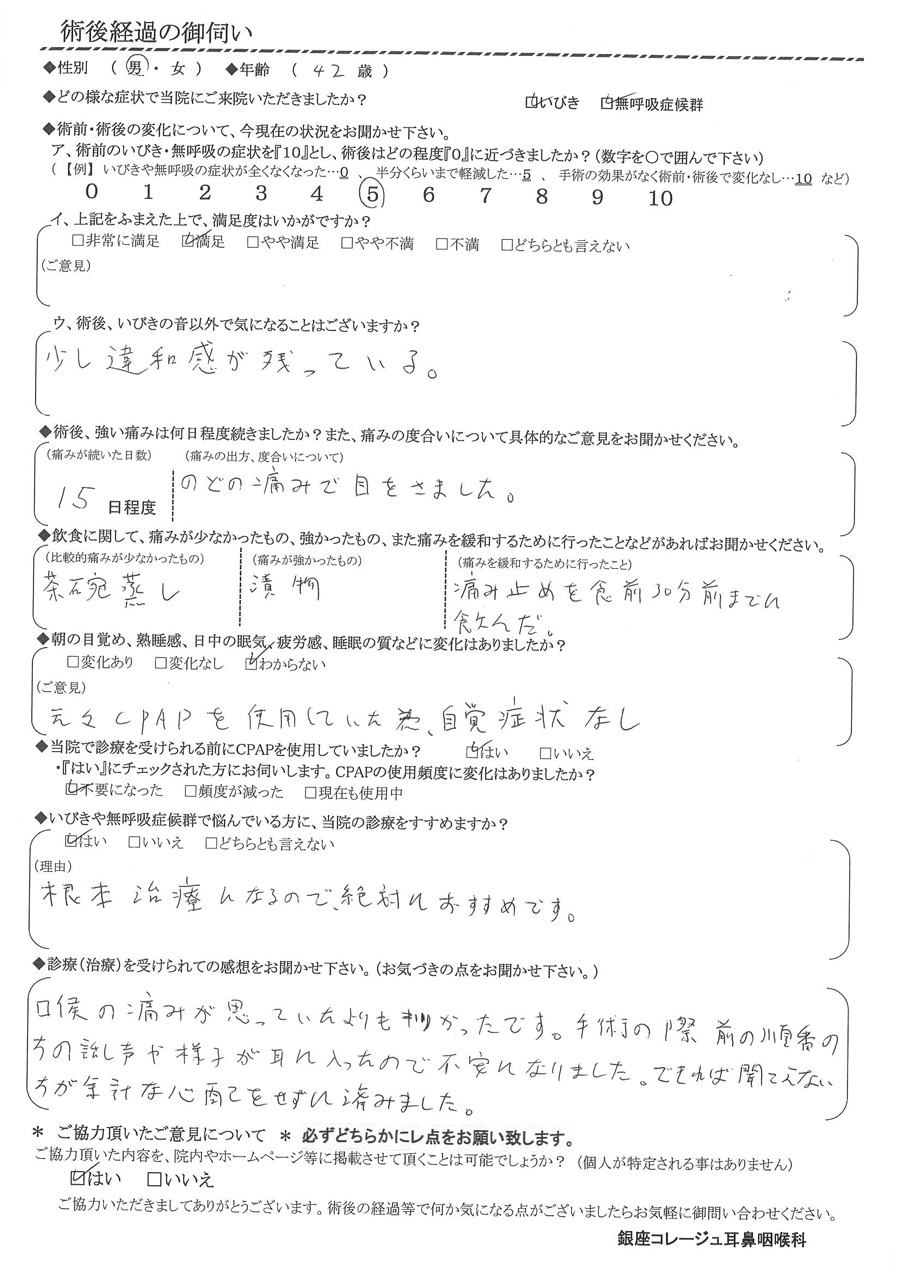 術後経過の御伺い
◆性別 （ 男 ・ 女 ） ◆年齢 （ 42 歳 ）
◆どの様な症状で当院にご来院いただきましたか？ ☑いびき ☑無呼吸症候群
◆術前・術後の変化について、今現在の状況をお聞かせ下さい。
ア、術前のいびき・無呼吸の症状を『10』とし、術後はどの程度『0』に近づきましたか？（数字を〇で囲んで下さい）
（ 【例】 いびきや無呼吸の症状が全くなくなった…0 、 半分くらいまで軽減した…5 、 手術の効果がなく術前・術後で変化なし…10 など）
0 1 2 3 4 5 6 7 8 9 10
イ、上記をふまえた上で、満足度はいかがですか？
□非常に満足 ☑満足 □やや満足 □やや不満 □不満 □どちらとも言えない
（ご意見）
ウ、術後、いびきの音以外で気になることはございますか？
少し違和感が残っている。
◆術後、強い痛みは何日程度続きましたか？また、痛みの度合いについて具体的なご意見をお聞かせください。
（痛みが続いた日数） （痛みの出方、度合いについて）
15 日程度 のどの痛みで目をさました。
◆飲食に関して、痛みが少なかったもの、強かったもの、また痛みを緩和するために行ったことなどがあればお聞かせください。
（比較的痛みが少なかったもの） （痛みが強かったもの） （痛みを緩和するために行ったこと）
茶碗蒸し 漬物 痛み止めを食前30分前までに
飲んだ。
◆朝の目覚め、熟睡感、日中の眠気、疲労感、睡眠の質などに変化はありましたか？
□変化あり □変化なし ☑わからない
（ご意見）
元々CPAPを使用していた為、自覚症状なし
◆当院で診療を受けられる前にCPAPを使用していましたか？ ☑はい □いいえ
・『はい』にチェックされた方にお伺いします。CPAPの使用頻度に変化はありましたか？
☑不要になった □頻度が減った □現在も使用中
◆いびきや無呼吸症候群で悩んでいる方に、当院の診療をすすめますか？
☑はい □いいえ □どちらとも言えない
（理由）
根本治療になるので、絶対におすすめです。
◆診療（治療）を受けられての感想をお聞かせ下さい。（お気づきの点をお聞かせ下さい。）
口侯の痛みが思っていたよりも かったです。手術の際前の順番の
方の話し声や様子が耳に入ったので不安になりました。できれば聞こえない
方が余計な心配をせずに済みました。
＊ ご協力頂いたご意見について ＊ 必ずどちらかにレ点をお願い致します。
ご協力頂いた内容を、院内やホームページ等に掲載させて頂くことは可能でしょうか？ （個人が特定される事はありません）
☑はい □いいえ
ご協力いただきましてありがとうございます。術後の経過等で何か気になる点がございましたらお気軽に御問い合わせください。
銀座コレージュ耳鼻咽喉科